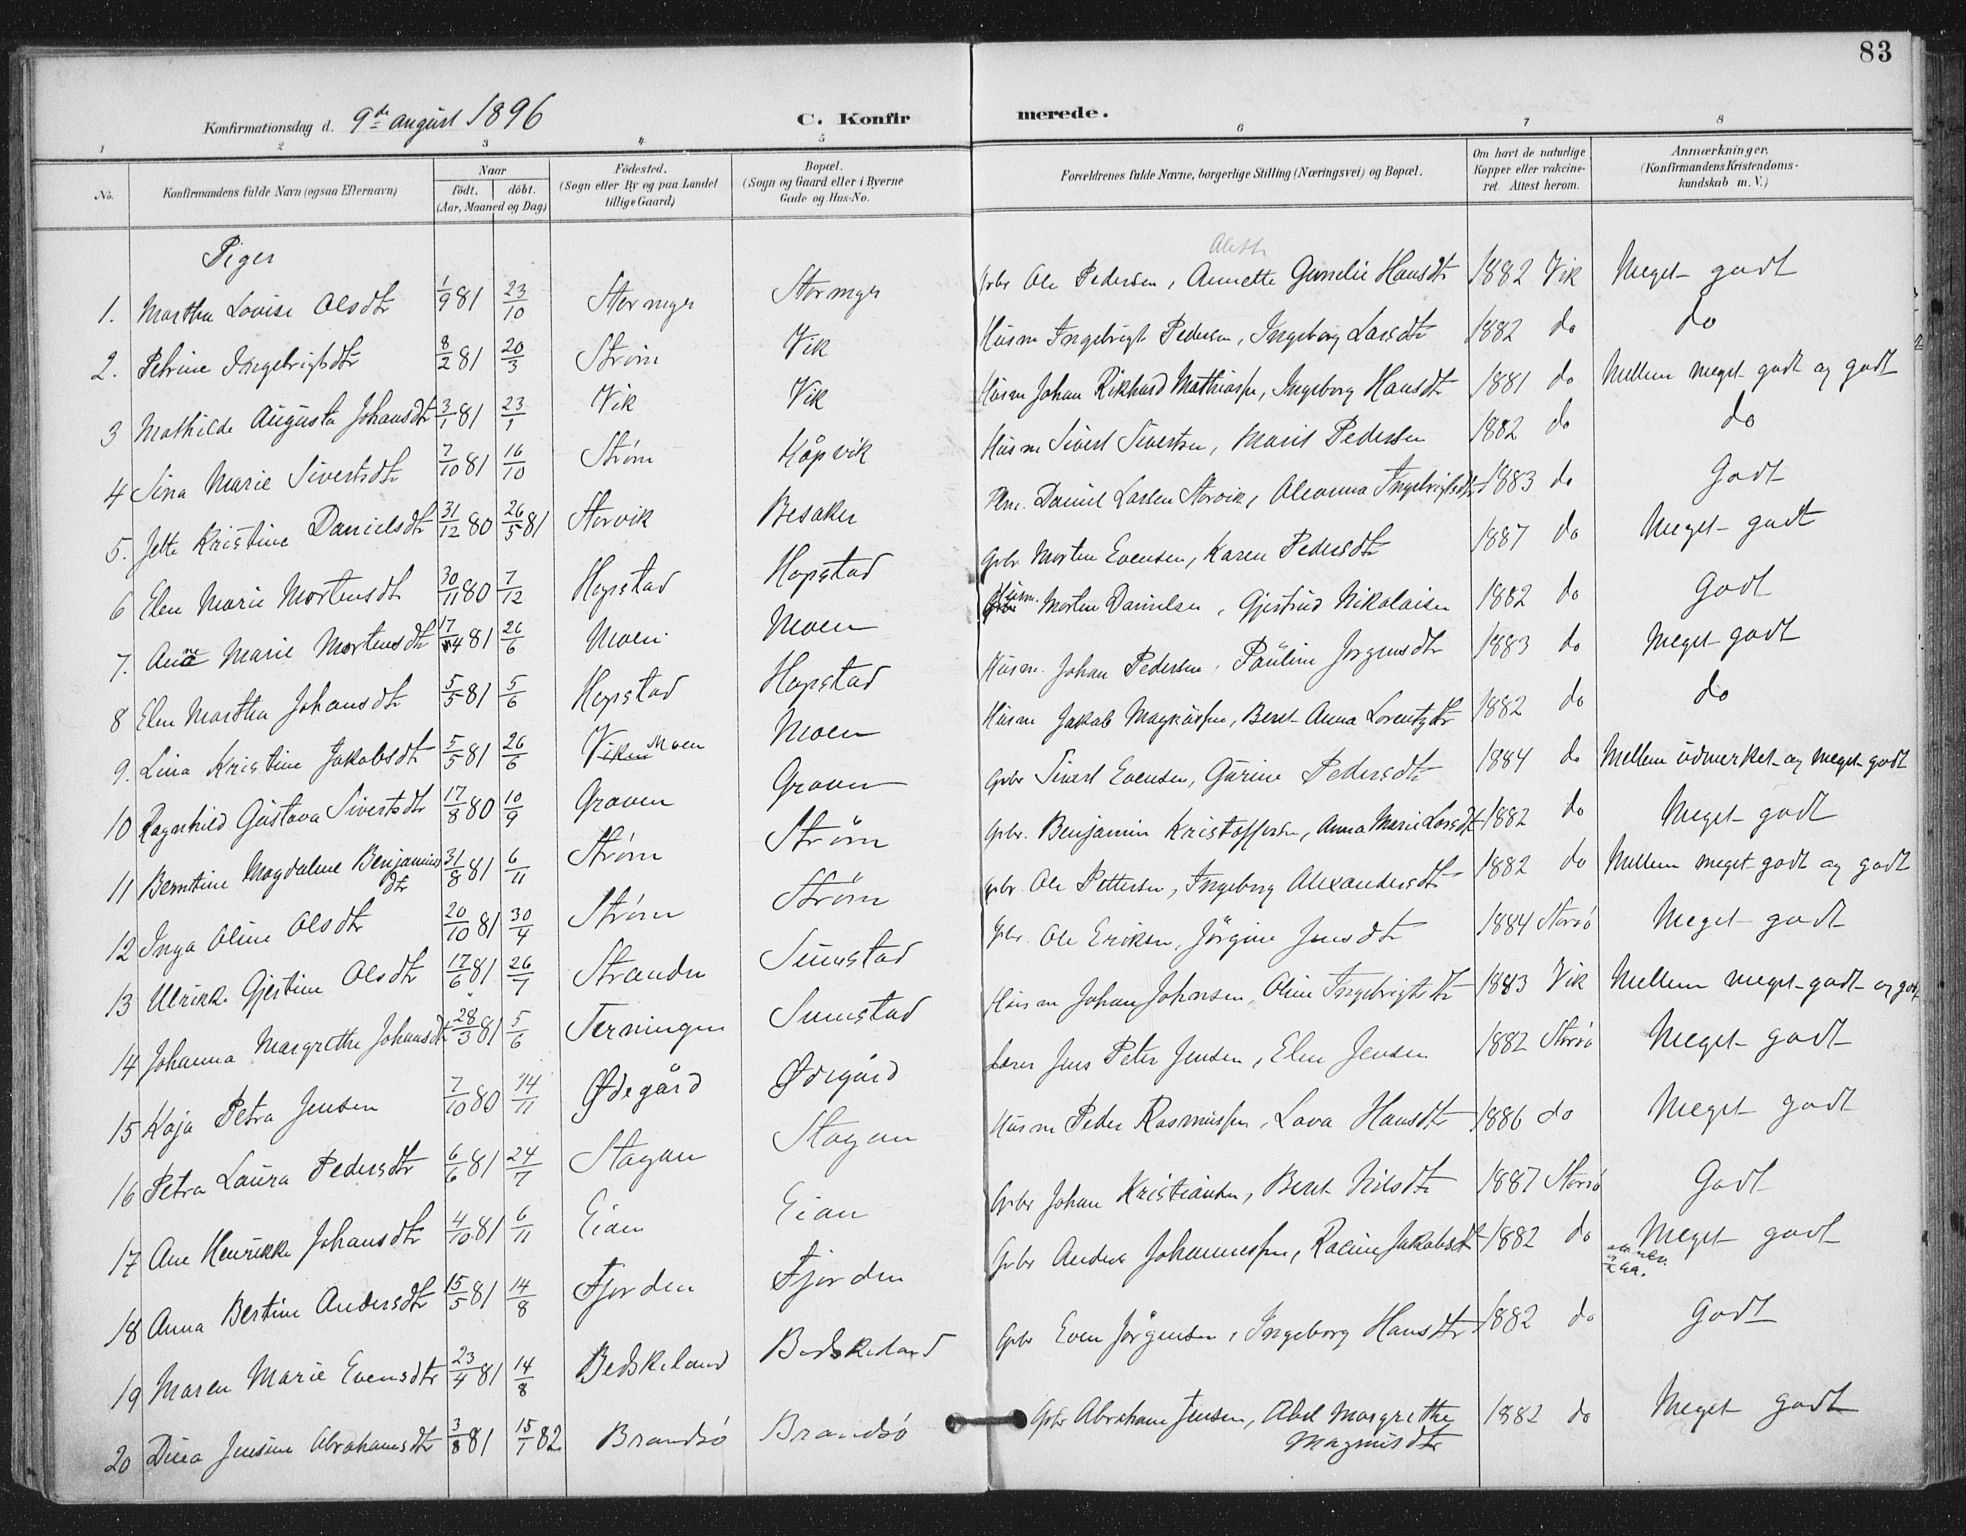 83
Konfirmationsdag d. 9de august 1896 C. Konfirmerede.
1 2 3 4 5 6 7 8
No. Konfirmandens fulde Navn (ogsaa Efternavn) Naar födt. döbt. (Aar, Maaned og Dag) Födested. (Sogn eller By og paa Landet tillige Gaard) Bopæl. (Sogn og Gaard eller i Byerne Gade og Hus-No. Forældrenes fulde Navne, borgerlige Stilling (Næringsvei) og Bopæl. Om havt de naturlige Kopper eller vakcineret. Attest herom. Anmærkninger. (Konfirmandens Kristendomskundskab m. V.)
Piger
1. Martha Lovise Olsdtr 1/9 81 23/10 Stormyr Stormyr Gbr Ole Pedersen, Annette Gunelie Hansdtr 1882 Vik Meget godt
2. Petrine Ingebrigtsdtr 8/2 81 20/3 Strøm Vik Husm Ingebrigt Pedersen, Ingeborg Larsdtr 1882 do do
3 Mathilde Augusta Johansdtr 3/1 81 23/1 Vik Vik Husm Johan Rikhard Mathiassen, Ingeborg Hansdtr 1881 do Mellem meget godt og godt
4 Sina Marie Sivertsdtr 7/10 81 16/10 Strøm Kåpvik Husm Sivert Sivertsen, Marit Pedersen 1882 do do
5. Jette Kristine Danielsdtr 31/12 80 26/5 81 Storvik Besaker Daniel Larsen Storvik, Oleanna Ingebrigtsdtr 1883 do Godt
6 Elen Marie Mortensdtr 30/11 80 7/12 Hopstad Hopstad Gbr Morten Evensen, Karen Pedersdtr 1887 do Meget godt
7. Ane Marie Mortensdtr 17/4 81 26/6 Moen Moen Husm. Morten Danielsen, Gjertrud Nikolaisen 1882 do Godt
8 Elen Martha Johansdtr 5/5 81 5/6 Hopstad Hopstad Husm. Johan Pedersen, Pauline Jørgensdtr 1883 do Meget godt
9. Lina Kristine Jakobsdtr 5/5 81 26/6 Viken Moen Moen Husm Jakob Magnussen, Beret Anna Lorentzdtr 1882 do do
10 Ragnhild Gustava Sivertsdtr 17/8 80 10/9 Graven Graven Gbr Sivert Evensen, Gurine Pedersdtr 1884 do Mellem udmerket og meget godt
11 Berntine Magdalene Benjaminsdtr 31/8 81 6/11 Strøm Strøm Gbr. Benjamin Kristoffersen, Anna Marie Larsdtr 1882 do Meget godt
12 Inga Oline Olsdtr 20/10 81 30/4 Strøm Strøm Gbr. Ole Pettersen, Ingeborg Alexandersdtr 1882 do Mellem meget godt og godt
13 Ulrikke Gjertine Olsdtr 17/6 81 26/7 Strande Sumstad Gbr. Ole Eriksen, Jörgine Jensdtr 1884 Storsø Meget godt
14 Johanna Margrethe Johansdtr 28/3 81 5/6 Terningen Sumstad Husm Johan Johnsen, Oline Ingebrigtsdtr 1883 Vik Mellem meget godt og godt
15 Kaja Petra Jensen 7/10 80 14/11 Ødegård Ødegård Lærer Jens Peter Jensen, Elen Jensen 1882 Storsø Meget godt
16 Petra Laura Pedersdtr 6/6 81 24/7 Stagan Stagan Husm Peder Rasmussen, Lava Hansdtr 1886 do Meget godt
17 Ane Henrikke Johansdtr 4/10 81 6/11 Eian Eian Gbr Johan Kristiansen, Beret Nilsdtr 1887 Storsø Godt
18 Anna Bertine Andersdtr 15/5 81 14/8 Fjorden Fjorden Gbr Anders Johannessen, Racine Jakobsdtr 1882 do Meget godt
19 Maren Marie Evensdtr 23/4 81 14/8 Bedskeland Bedskeland Gbr Even Jörgensen, Ingeborg Hansdtr 1882 do Godt
20 Dina Jensine Abrahamsdtr 3/8 81 15/1 82 Brandsö Brandsö Gbr Abraham Jensen, Abel Margrethe Magnusdtr 1882 do Meget godt